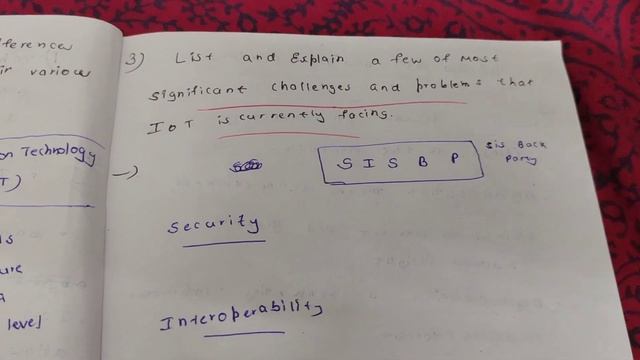 ferences
ir various
on Technology
T)
ls
ure
a
level
3) List and Explain a few of most
significant challenges and problems that
IOT is currently facing.
S I S B P
sis Back
Pony
Security
Interoperability